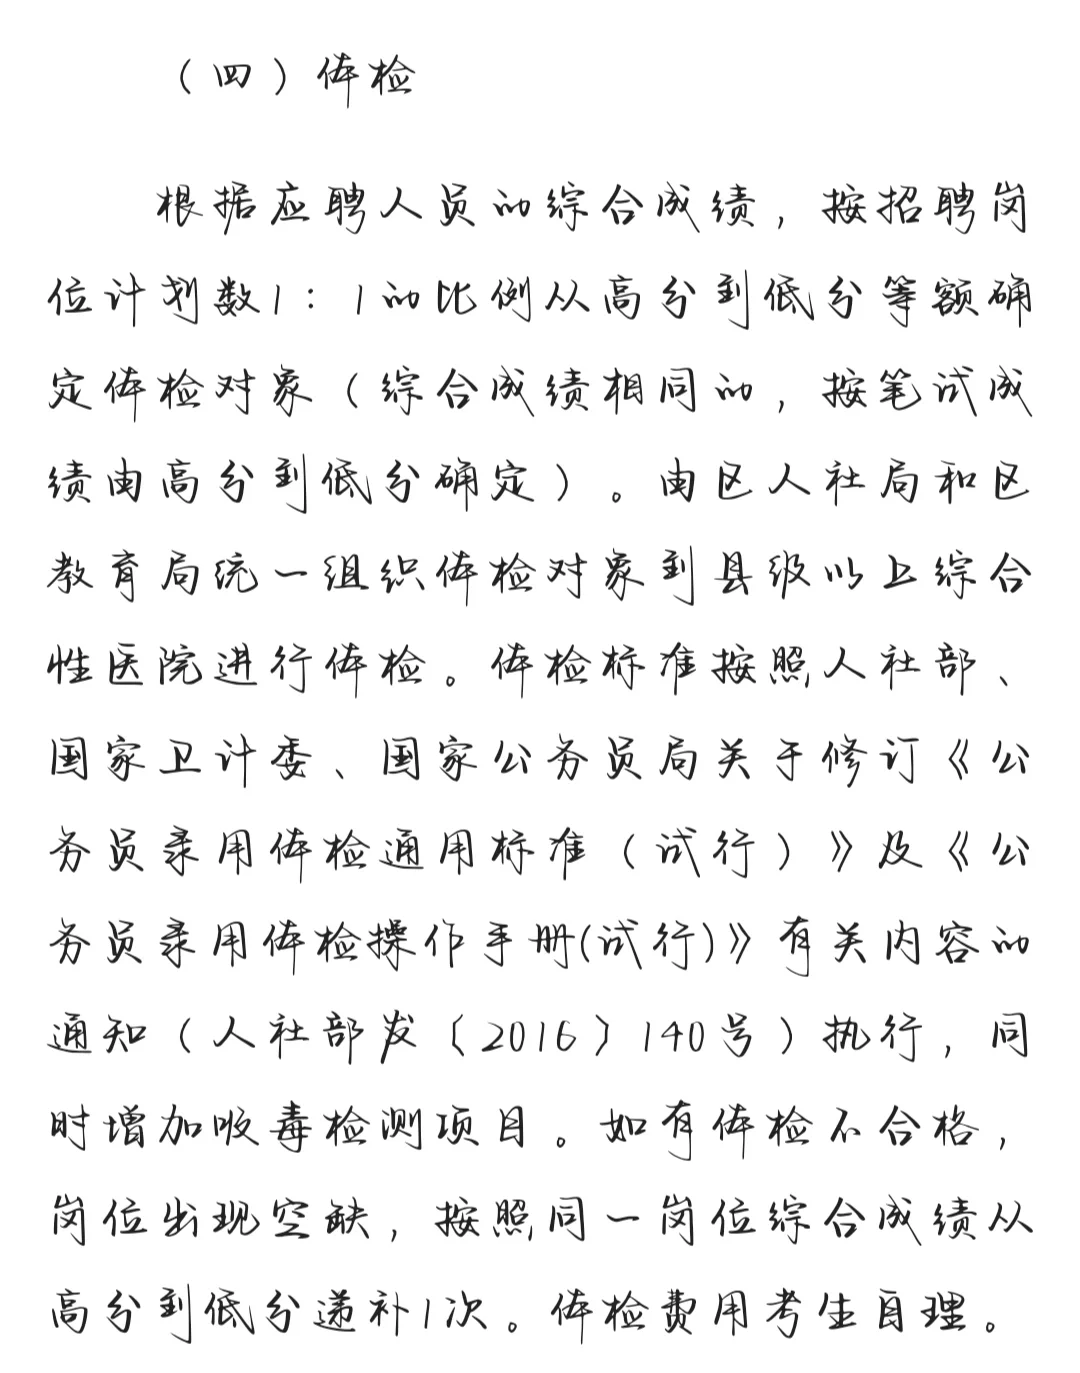 （四）体检
根据应聘人员的综合成绩，按招聘岗
位计划数1：1的比例从高分到低分等额确
定体检对象（综合成绩相同的，按笔试成
绩由高分到低分确定）。由区人社局和区
教育局统一组织体检对象到县级以上综合
性医院进行体检。体检标准按照人社部、
国家卫计委、国家公务员局关于修订《公
务员录用体检通用标准（试行）》及《公
务员录用体检操作手册(试行)》有关内容的
通知（人社部发〔2016〕140号）执行，同
时增加吸毒检测项目。如有体检不合格，
岗位出现空缺，按照同一岗位综合成绩从
高分到低分递补1次。体检费用考生自理。